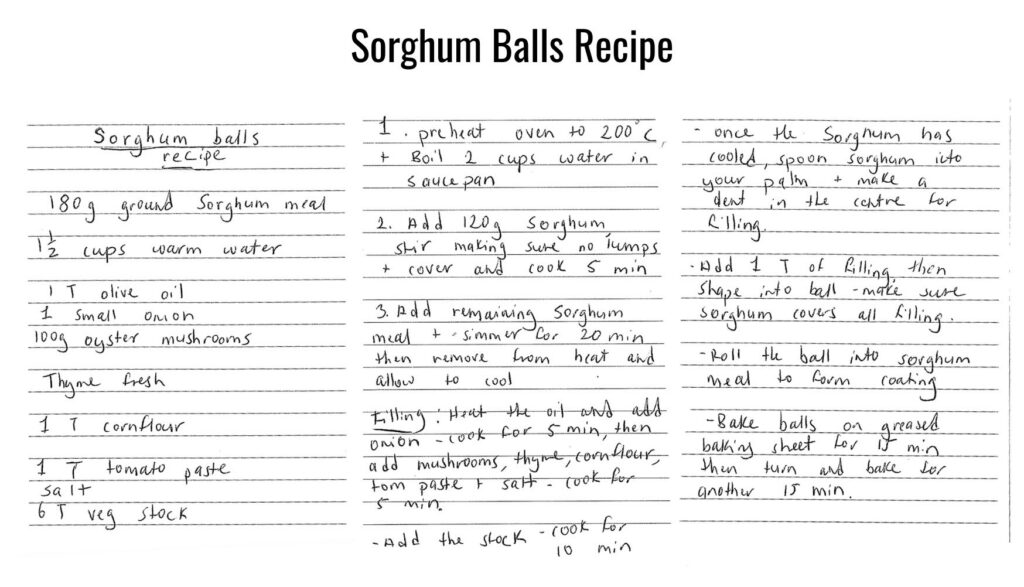 Sorghum Balls Recipe
Sorghum balls
recipe
180g ground Sorghum meal
1 1/2 cups warm water
1 T olive oil
1 small onion
100g oyster mushrooms
Thyme fresh
1 T cornflour
1 T tomato paste
salt
6 T veg stock
1. preheat oven to 200°C,
+ Boil 2 cups water in
saucepan
2. Add 120g Sorghum
stir making sure no lumps
+ cover and cook 5 min
3. Add remaining Sorghum
meal + - simmer for 20 min
then remove from heat and
allow to cool
Filling : Heat the oil and add
onion - cook for 5 min, then
add mushrooms, thyme, cornflour,
tom paste + salt - cook for
5 min.
- Add the stock - cook for
10 min
- once the Sorghum has
cooled, spoon sorghum into
your palm + make a
dent in the centre for
filling.
- Add 1 T of filling, then
shape into ball - make sure
sorghum covers all filling.
- Roll the ball into sorghum
meal to form coating
- Bake balls on greased
baking sheet for 15 min
then turn and bake for
another 15 min.